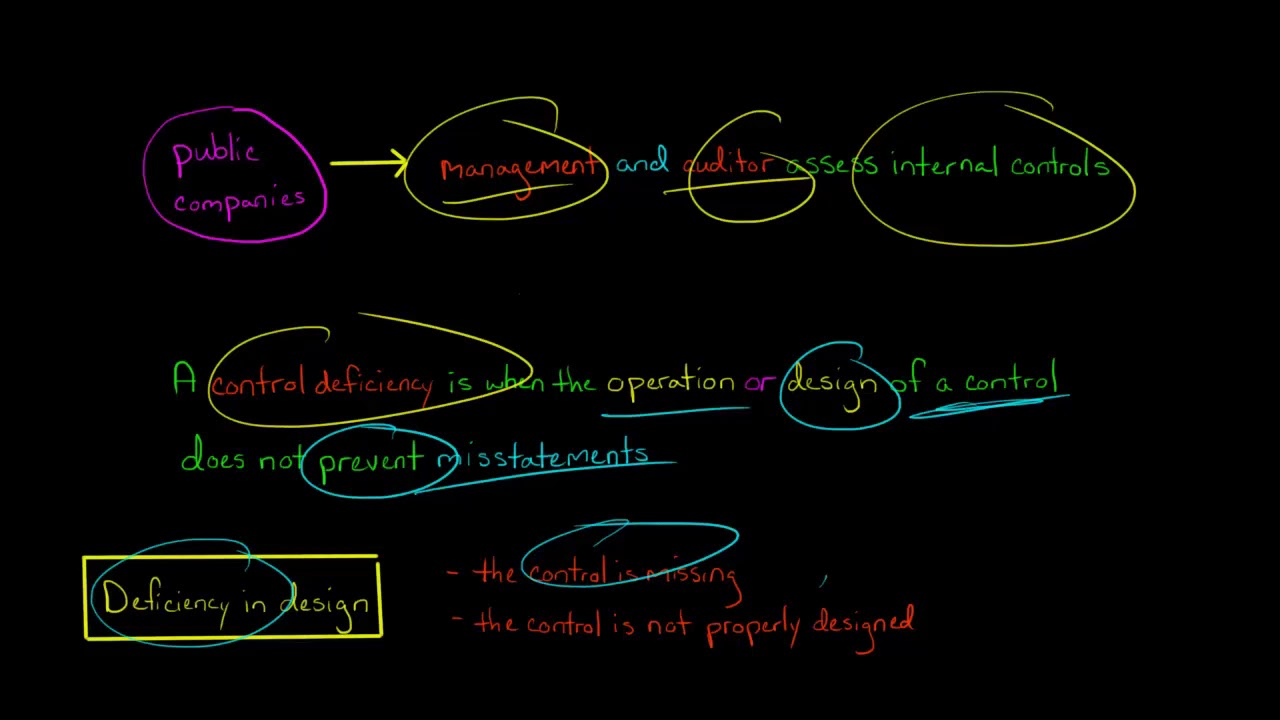 public
companies
management and auditor assess internal controls
A control deficiency is when the operation or design of a control
does not prevent misstatements
Deficiency in design
- the control is missing
- the control is not properly designed